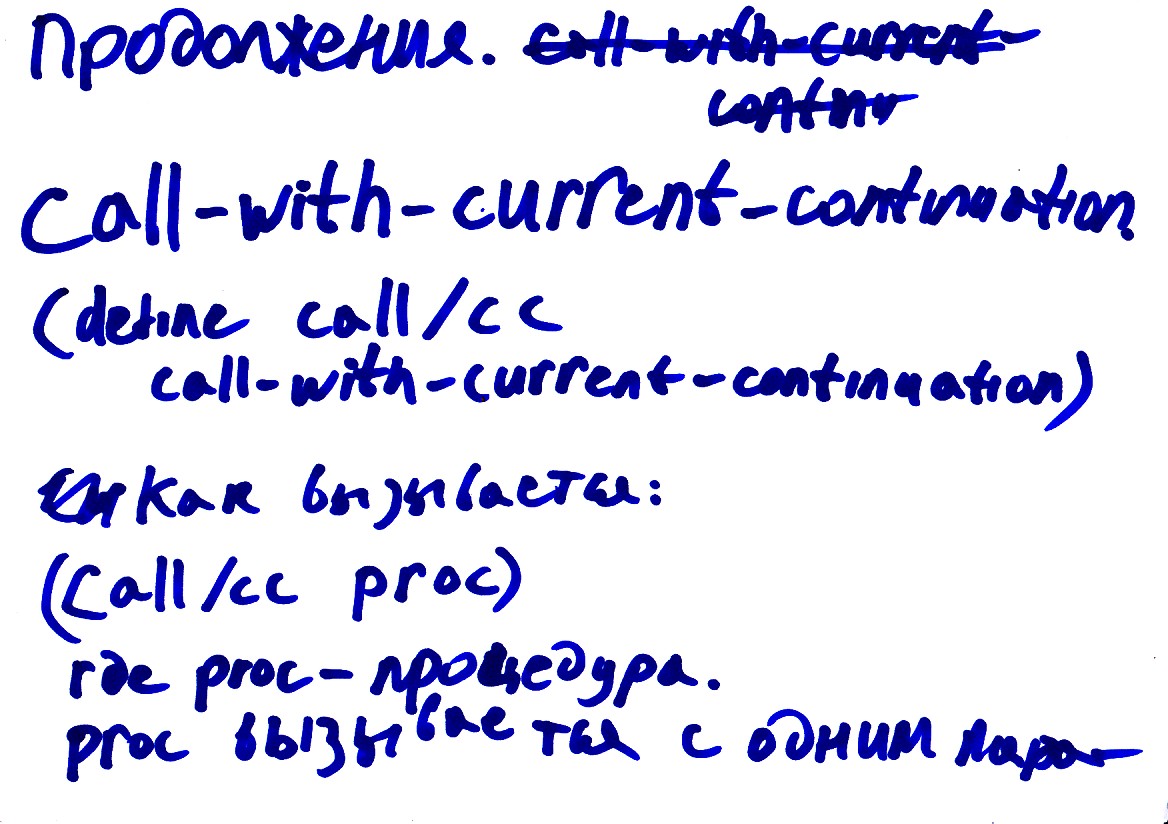 Продолжения. call-with-current-
continu
call-with-current-continuation
(define call/cc
call-with-current-continuation)
Как вызывается:
(call/cc proc)
где proc - процедура.
proc вызывается с одним пара-